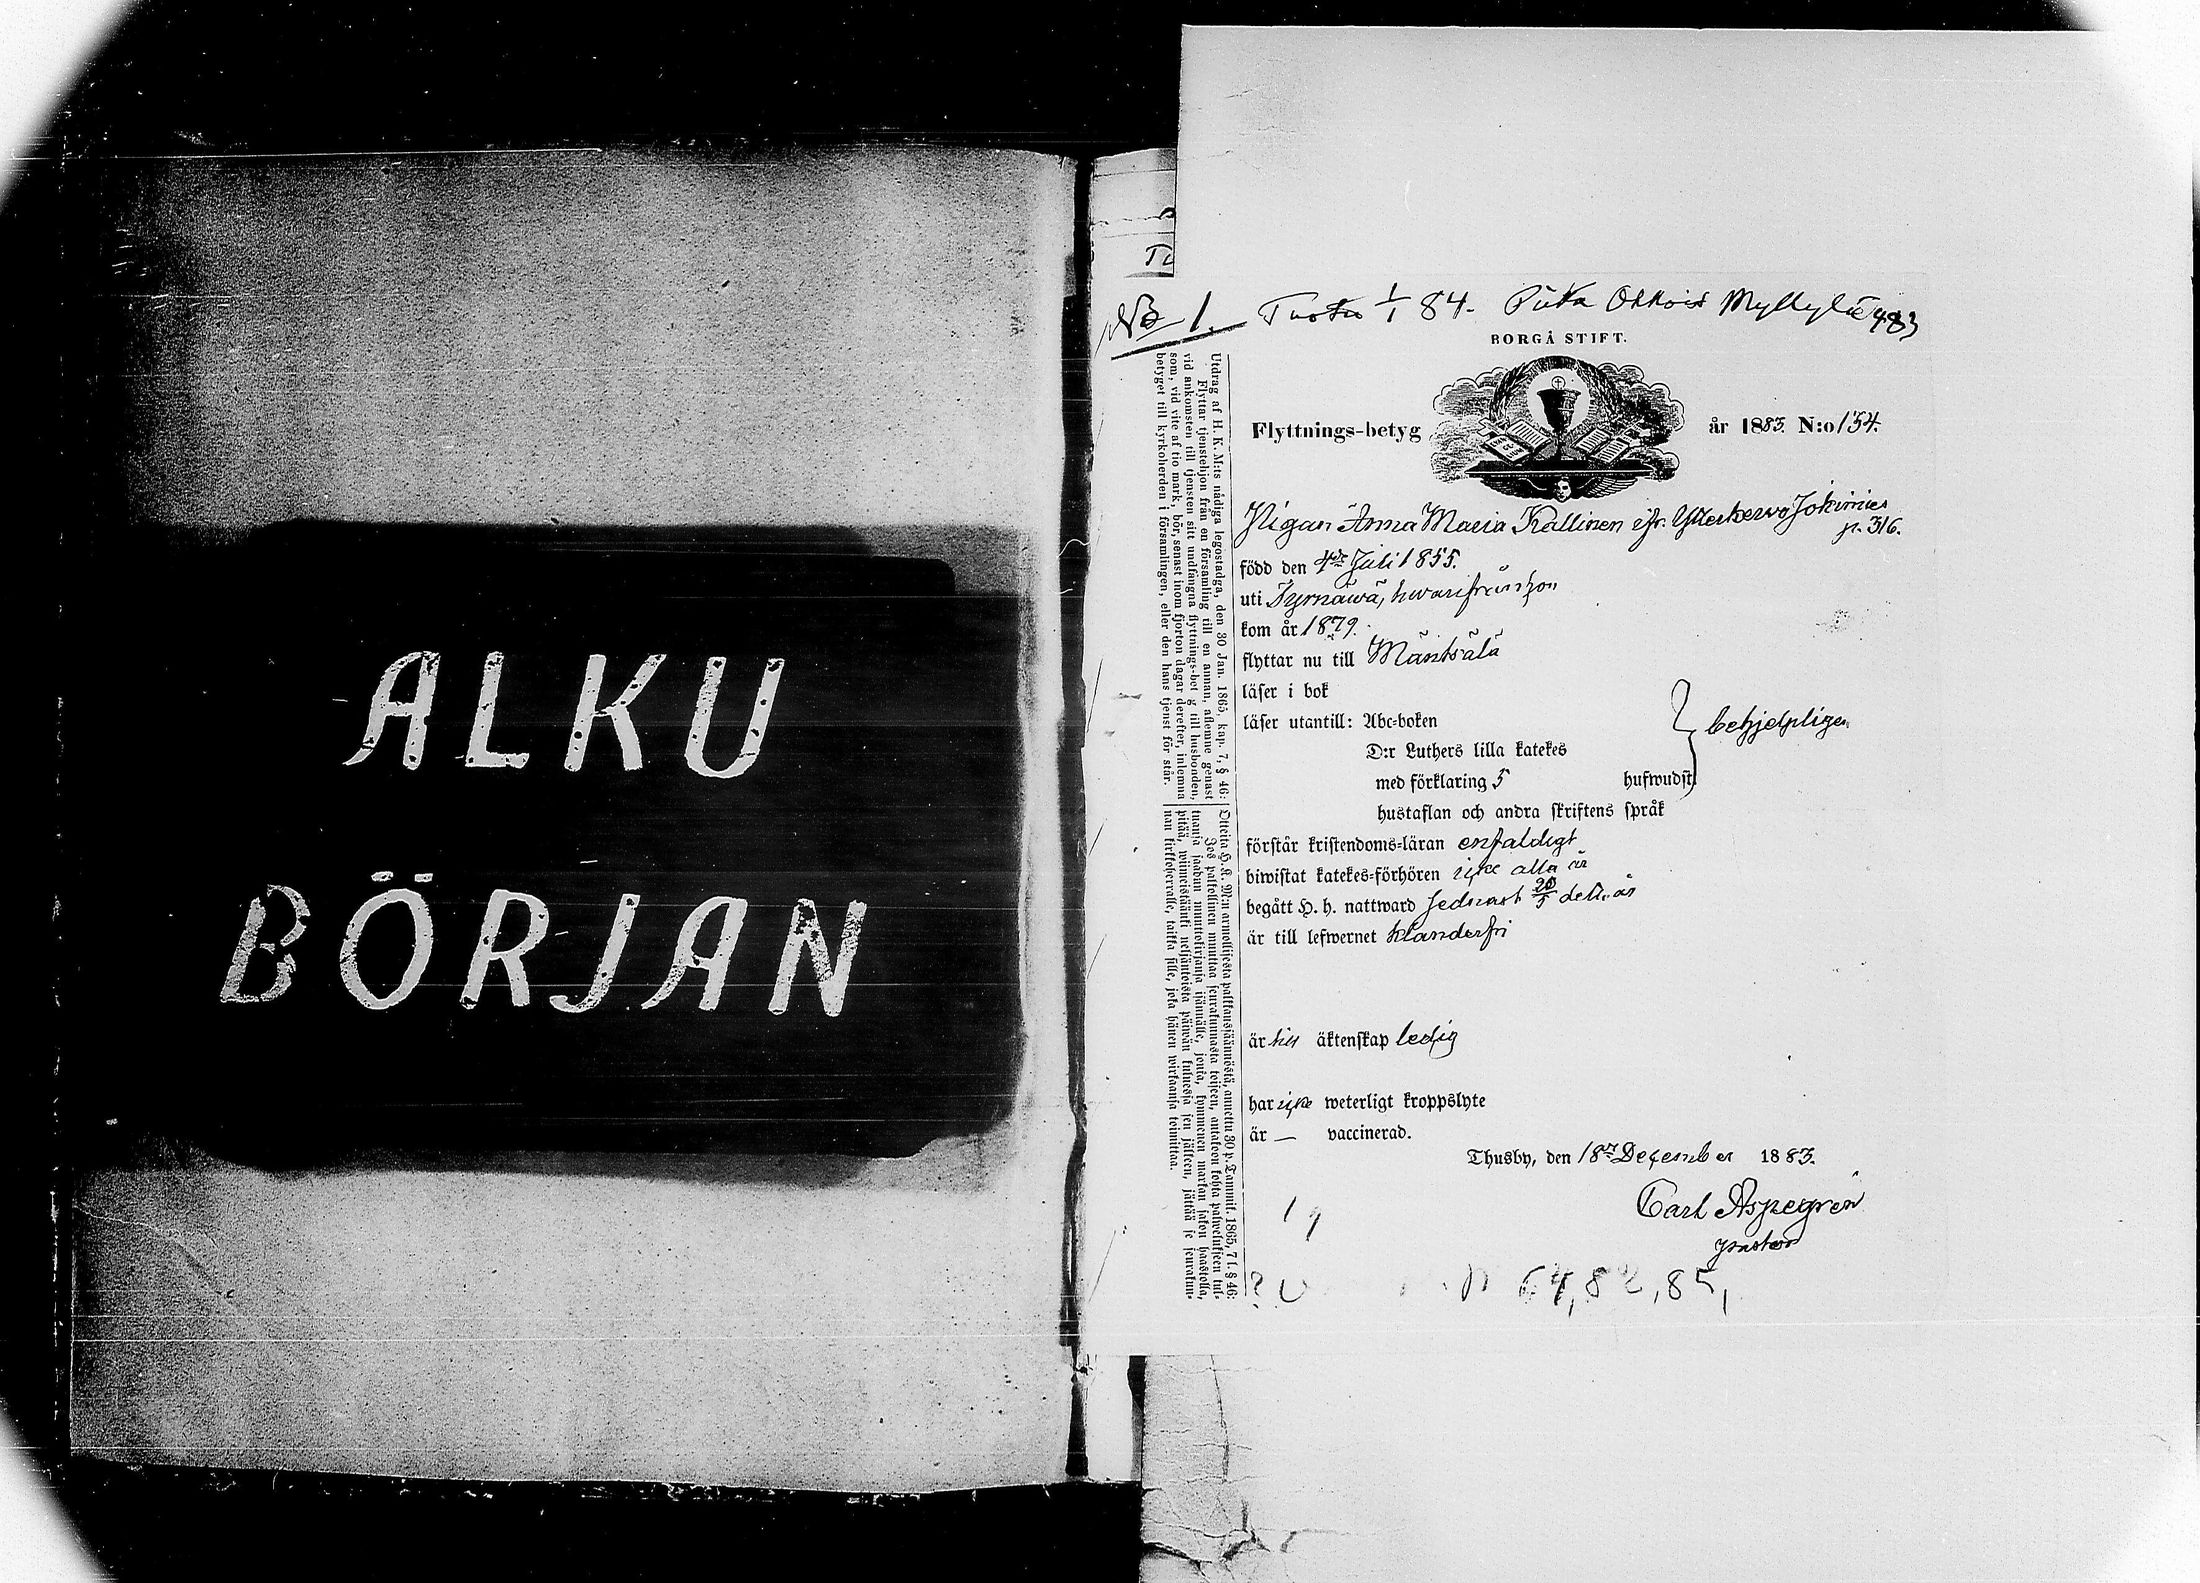 ALKU
BÖRJAN
No 1. Tuotu 1/1 84. Piika Ohkois Myllylä 483
BORGÅ STIFT.
Flyttnings-betyg år 1883. N:o 134.
Pigan Anna Maria Kallinen ifr. Ylikerwo Jokimies
p. 316.
född den 4de Juli 1855.
uti Tyrnäwä, hwarifrån hon
kom år 1879.
flyttar nu till Mäntsälä
läser i bok
läser utantill: Abc-boken
behjelpligen
D:r Luthers lilla katekes
med förklaring 5 hufwudst.
hustaflan och andra skriftens språk
förstår kristendoms-läran enfaldigt
biwistat katekes-förhören icke alla år
begått H. h. nattward sednast 20/5 detta år
är till lefwernet klanderfri
är till äktenskap ledig
har icke weterligt kroppslyte
är — vaccinerad.
Thusby, den 18de December 1883.
Carl Aspegrén
pastor
64, 82, 85,
Utdrag af H. K. M:ts nådiga legostadga, den 30 Jan. 1865, kap. 7, § 46:
Flyttar tjenstehjon från en församling till en annan, aflemne genast
vid ankomsten till tjensten sitt undfångna flyttnings-betyg till husbonden,
som, vid vite af tio mark, bör, senast inom fjorton dagar derefter, inlemna
betyget till kyrkoherden i församlingen, eller den hans tjenst för står.
Otteita H. K. M:n armollisesta palkkausjäännöstä, annettu 30 p. Tammik. 1865, 7 l. § 46:
Jos palkollinen muuttaa seurakunnasta toiseen, antakoon kohta palwelukseen tul-
tuansa saadun muuttokirjansa isännälle, jonka, kymmenen markan sakon haastolla,
pitää, wiimeistäänki neljäntoista päiwän kuluessa sen jälkeen, jättää se seurakun-
nan kirkkoherralle, taikka sille, joka hänen wirkaansa toimittaa.